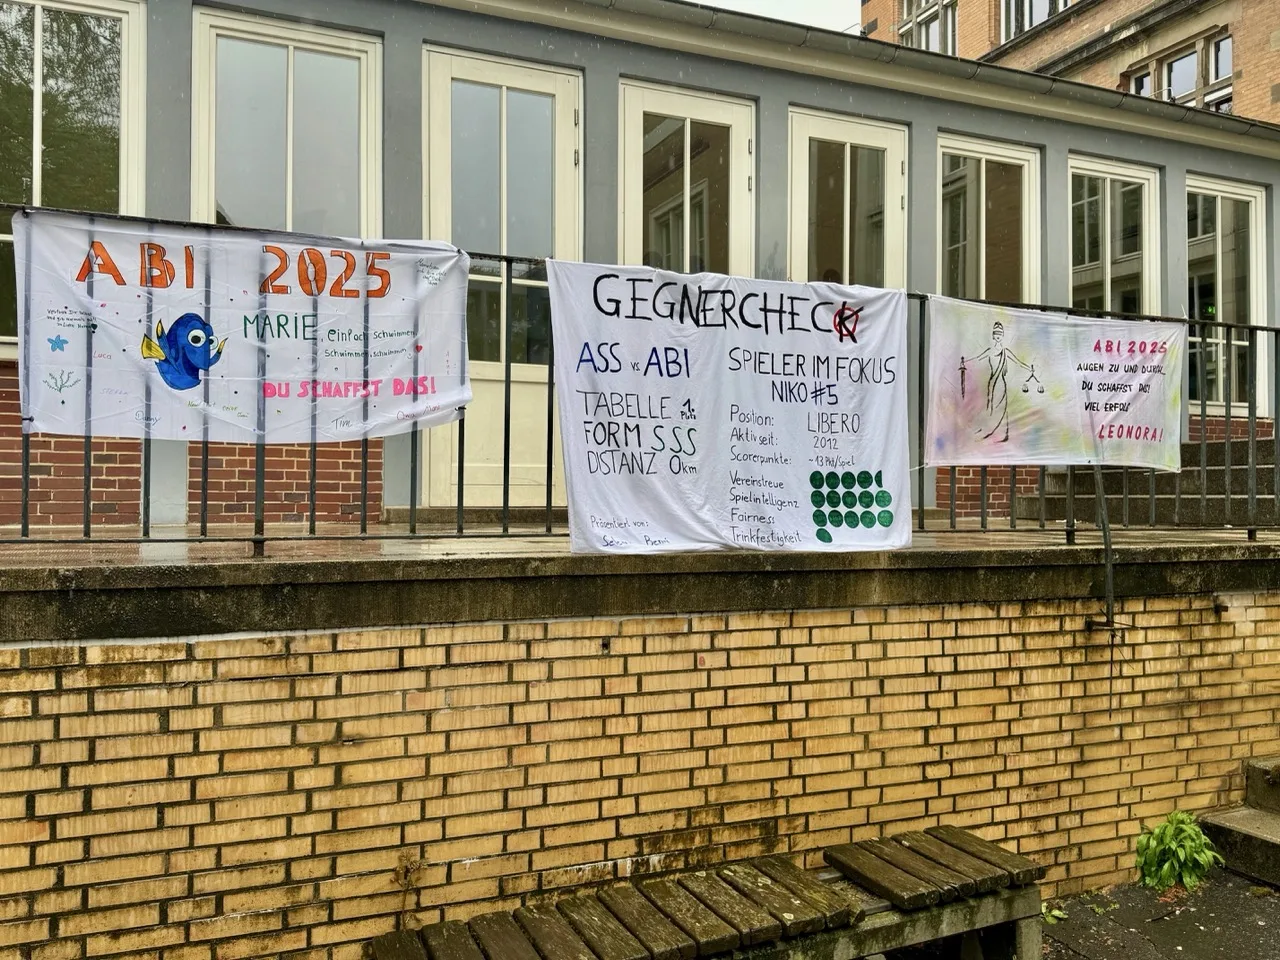 ABI 2025
MARIE, einfach schwimmen
schwimmen, schwimmen
DU SCHAFFST DAS!
Luca
Tim
GEGNERCHECK
ASS vs. ABI
TABELLE 1. Platz
FORM SSS
DISTANZ 0km
Präsentiert von:
SPIELER IM FOKUS
NIKO #5
Position: LIBERO
Aktiv seit: 2012
Scorerpunkte: ~13 Pkt/Spiel
Vereinstreue
Spielintelligenz
Fairness
Trinkfestigkeit
ABI 2025
AUGEN ZU UND DURCH,
DU SCHAFFST DAS!
VIEL ERFOLG
LEONORA!